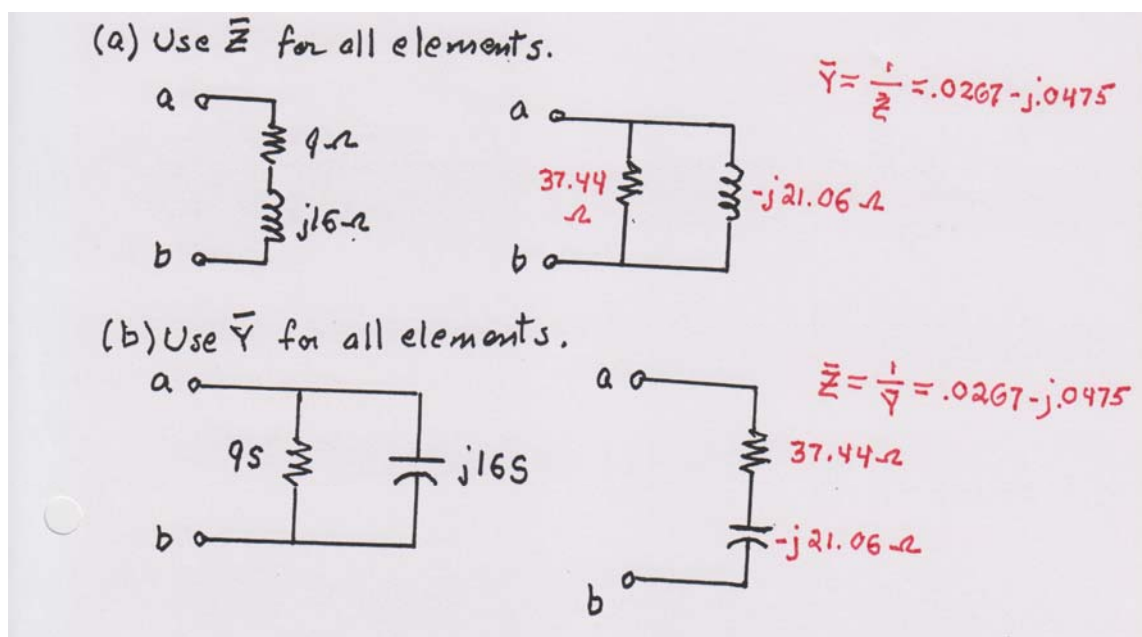 (a) Use Z̄ for all elements.
Ȳ = 1/Z̄ = .0267 - j.0475
a
9Ω
j16Ω
b
a
37.44
Ω
-j21.06Ω
b
(b) Use Ȳ for all elements.
Z̄ = 1/Ȳ = .0267 - j.0475
a
9S
j16S
b
a
37.44Ω
-j21.06Ω
b